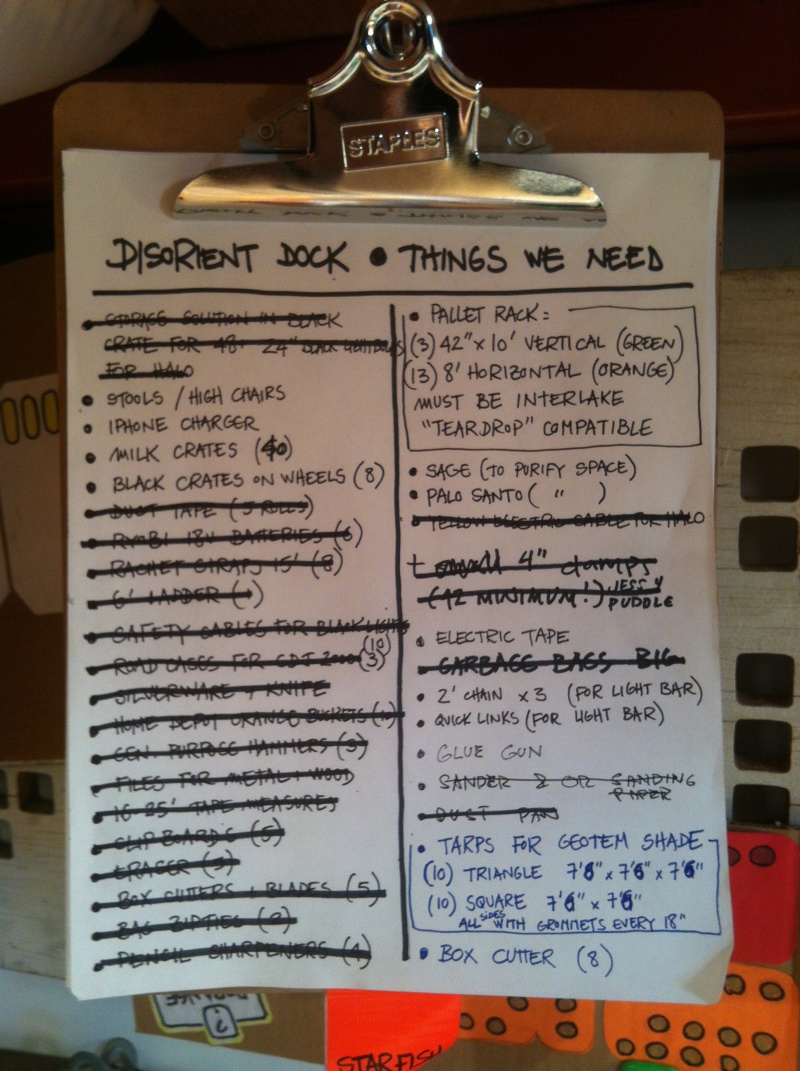 STAPLES
DISORIENT DOCK • THINGS WE NEED
• STORAGE SOLUTION IN BLACK
CRATE FOR 48+ 24" BLACK LIGHT
FOR HALO
• STOOLS / HIGH CHAIRS
• IPHONE CHARGER
• MILK CRATES (40)
• BLACK CRATES ON WHEELS (8)
• DUCT TAPE (5 ROLLS)
• RYOBI 18V BATTERIES (6)
• RACHET STRAPS 15' (8)
• 6' LADDER (1)
• SAFETY CABLES FOR BLACK LIGHTS
(10)
• ROAD CASES FOR CDJ 2000 (3)
• SILVERWARE + KNIFE
• HOME DEPOT ORANGE BUCKETS
• GEN. PURPOSE HAMMERS (3)
• FILES FOR METAL + WOOD
• 16-25' TAPE MEASURES
• CLIPBOARDS (5)
• ERASER (5)
• BOX CUTTERS + BLADES (5)
• BAG ZIPTIES (2)
• PENCIL SHARPENERS (4)
• PALLET RACK:
(3) 42" x 10' VERTICAL (GREEN)
(13) 8' HORIZONTAL (ORANGE)
MUST BE INTERLAKE
"TEARDROP" COMPATIBLE
• SAGE (TO PURIFY SPACE)
• PALO SANTO ( " )
• YELLOW ELECTRIC CABLE FOR HALO
small 4" clamps
(12 MINIMUM!) JESS Y
PUDDLE
• ELECTRIC TAPE
• GARBAGE BAGS BIG
• 2' CHAIN x 3 (FOR LIGHT BAR)
• QUICK LINKS (FOR LIGHT BAR)
• GLUE GUN
• SANDER & OR SANDING
PAPER
• DUST PAN
• TARPS FOR GEOTEM SHADE
(10) TRIANGLE 7'6" x 7'6" x 7'6"
(10) SQUARE 7'6" x 7'6"
ALL SIDES WITH GROMMETS EVERY 18"
• BOX CUTTER (8)
STARFISH